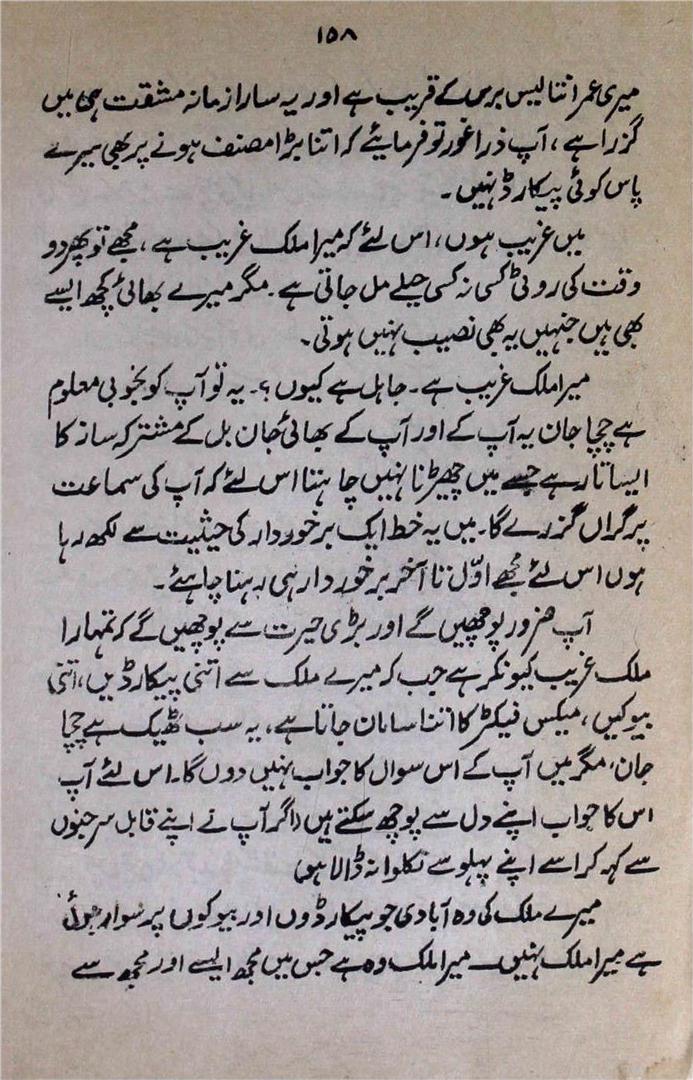 ۱۵۸
میری عمر انتالیس برس کے قریب ہے اور یہ سارا زمانہ مشقت ہی میں
گزرا ہے، آپ ذرا غور تو فرمایئے کہ اتنا بڑا مصنف ہونے پر بھی میرے
پاس کوئی پیکارڈ نہیں۔
میں غریب ہوں، اس لئے کہ میرا ملک غریب ہے، مجھے تو پھر دو
وقت کی روٹی کسی نہ کسی حیلے مل جاتی ہے۔ مگر میرے بھائی کچھ ایسے
بھی ہیں جنہیں یہ بھی نصیب نہیں ہوتی۔
میرا ملک غریب ہے۔ جاہل ہے کیوں؟۔ یہ تو آپ کو بخوبی معلوم
ہے چچا جان یہ آپ کے اور آپ کے بھائی جان بل کے مشترکہ ساز کا
ایسا تار ہے جسے میں چھیڑنا نہیں چاہتا اس لئے کہ آپ کی سماعت
پر گراں گزرے گا۔ میں یہ خط ایک برخوردار کی حیثیت سے لکھ رہا
ہوں اس لئے مجھے اوّل تا آخر برخوردار ہی رہنا چاہئے۔
آپ ضرور پوچھیں گے اور بڑی حیرت سے پوچھیں گے کہ تمہارا
ملک غریب کیونکر ہے جب کہ میرے ملک سے اتنی پیکارڈیں، اتنی
بیوکیں، میکس فیکٹر کا اتنا سامان جاتا ہے، یہ سب ٹھیک ہے چچا
جان، مگر میں آپ کے اس سوال کا جواب نہیں دوں گا۔ اس لئے آپ
اس کا جواب اپنے دل سے پوچھ سکتے ہیں (اگر آپ نے اپنے قابل سرجنوں
سے کہہ کر اسے اپنے پہلو سے نکلوا نہ ڈالا ہو)
میرے ملک کی وہ آبادی جو پیکارڈوں اور بیوکوں پر سوار ہوتی
ہے میرا ملک نہیں۔ میرا ملک وہ ہے جس میں مجھ ایسے اور مجھ سے